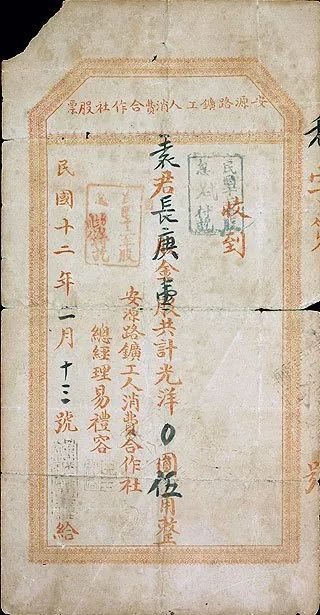 安源路鑛工人消費合作社股票
收到
袁君長庚金壹股共計光洋0圓伍角整
安源路鑛工人消費合作社
總經理易禮容
民國十二年二月十三號給